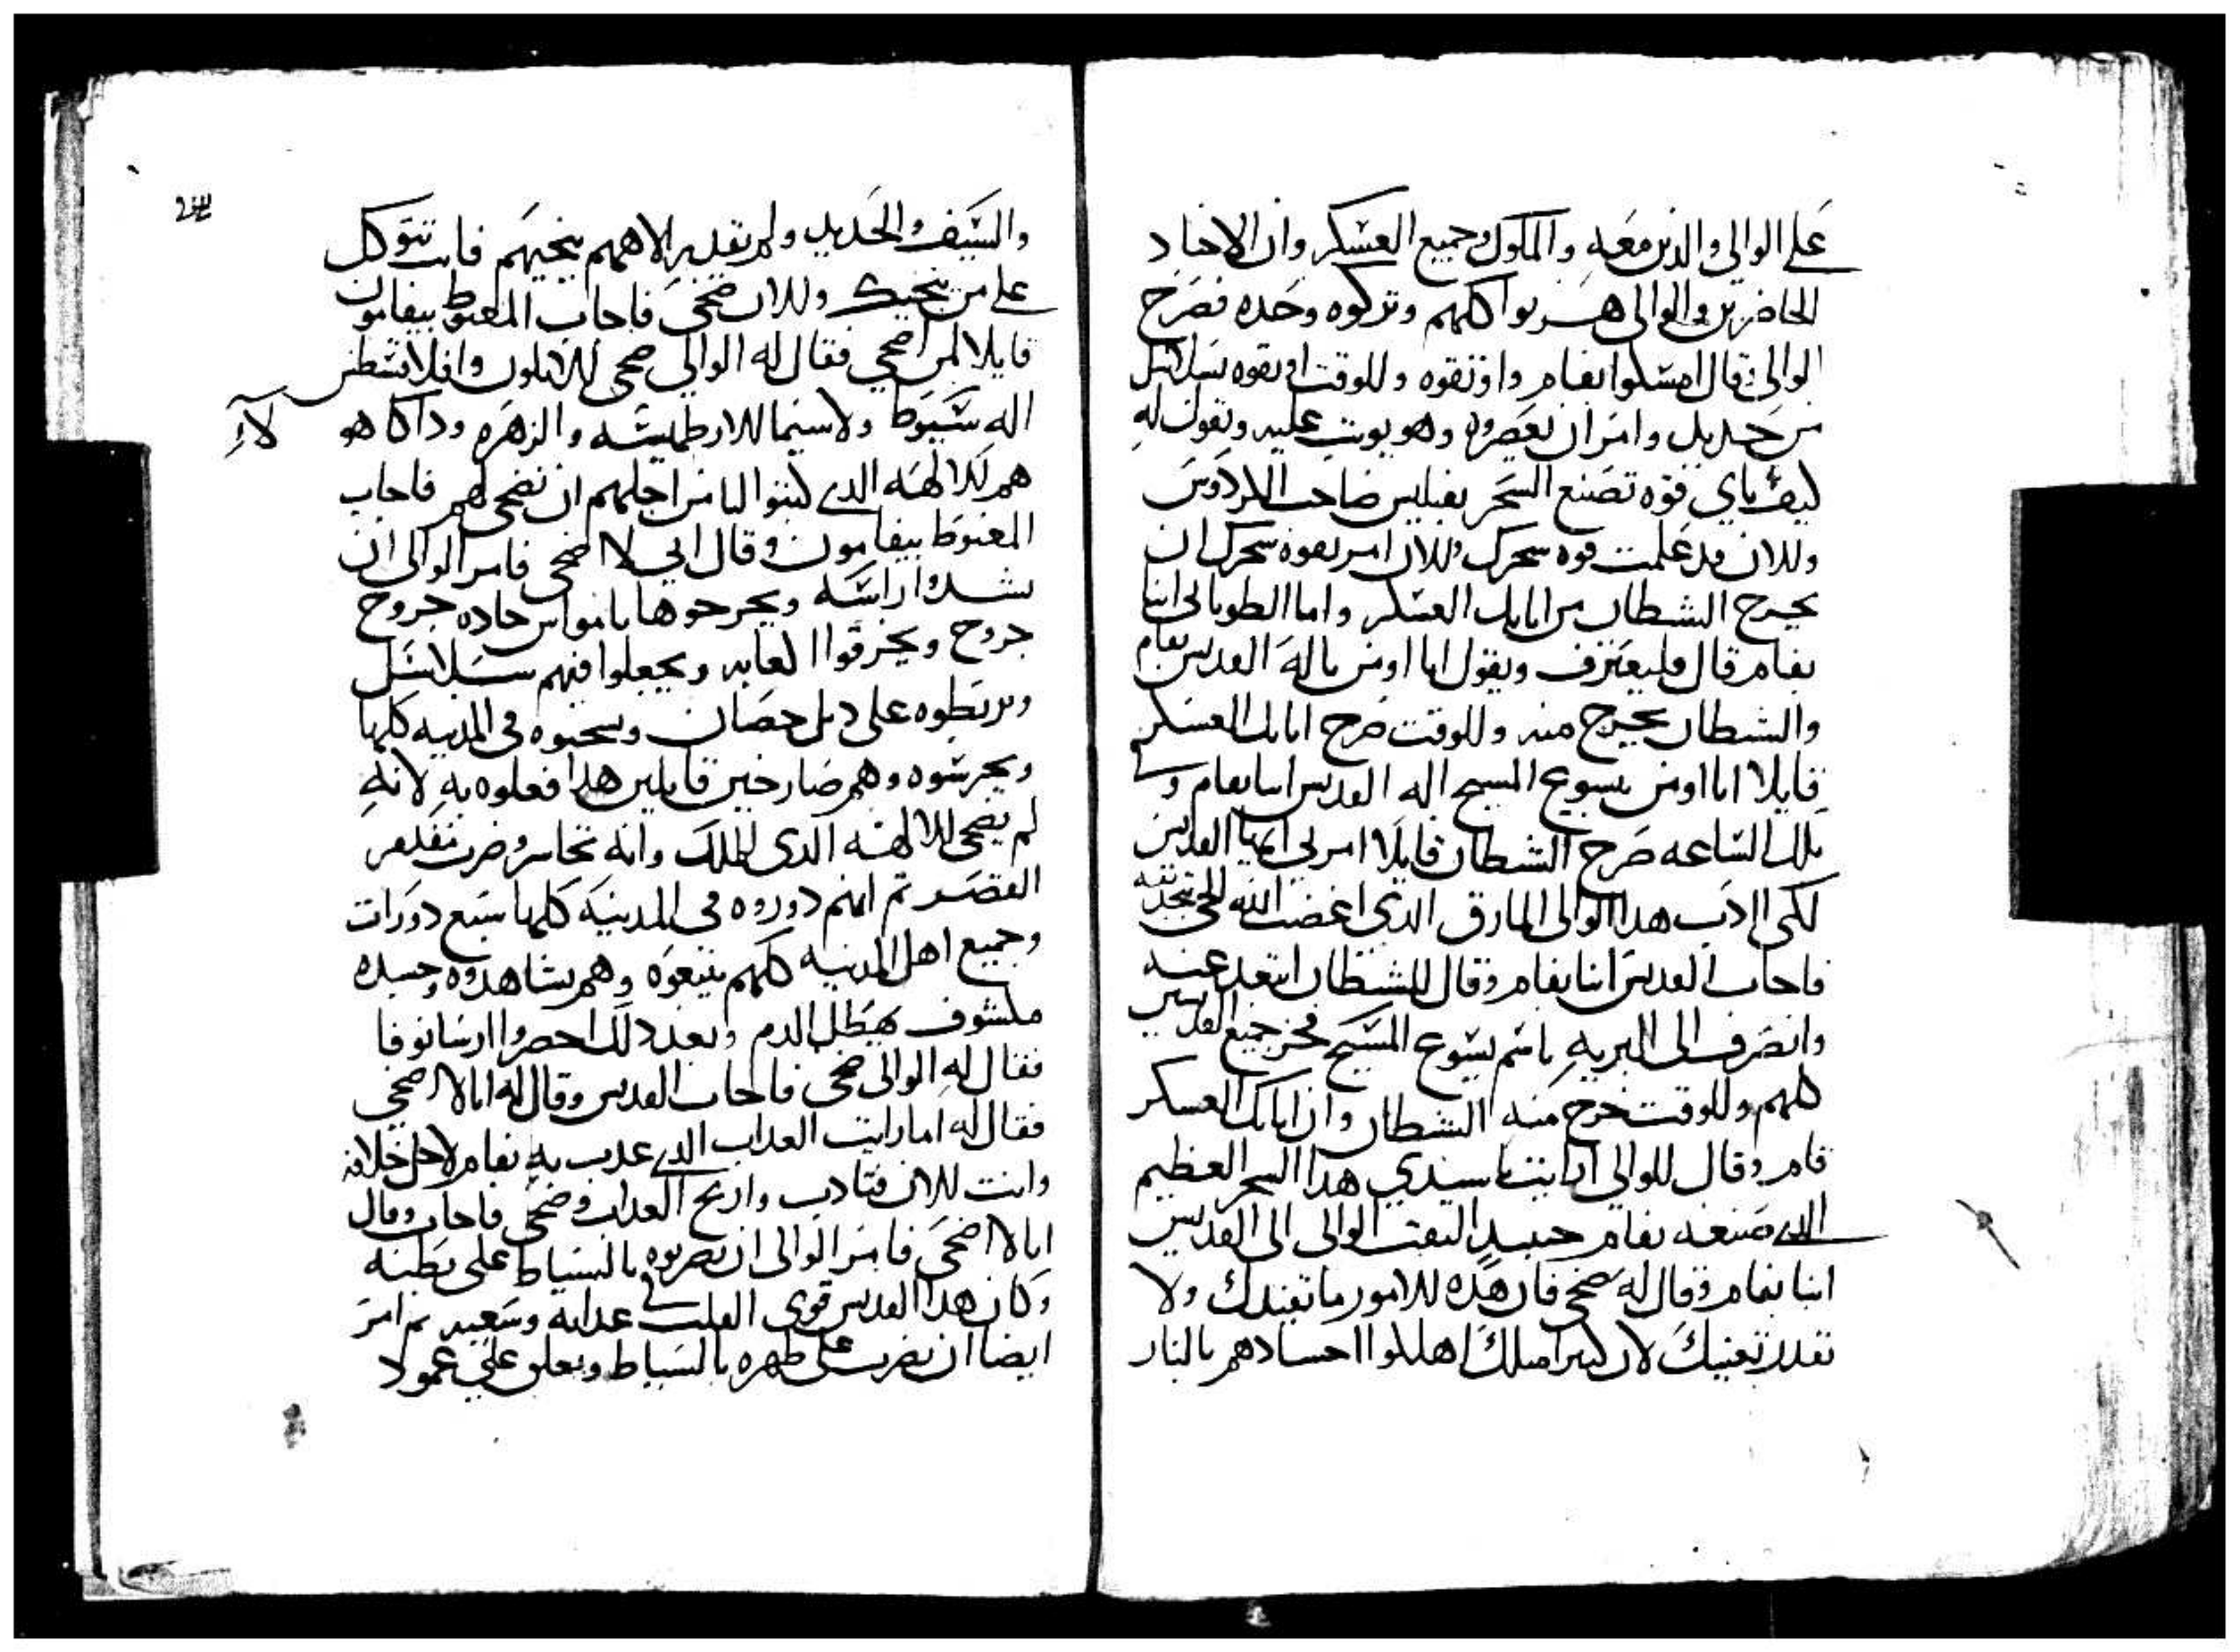 على الوالي والذين معه والملوك وجميع العسكر وان الاجناد
الحاضرين والوالي هربوا كلهم وتركوه وحده فصرخ
الوالي وقال امسكوا بفام واوثقوه وللوقت اوثقوه بسلاسل
من حديد وامر ان يعصروه وهو يوبخ عليه ويقول له
كيف باي قوه تصنع السحر
وللان قد علمت قوه سحرك وللان امر بقوه سحرك ان
يخرج الشيطان من العسكر واما الطوباني انبا
بفام قال فليعترف ويقول انا اومن باله القديس بفام
والشيطان يخرج منه وللوقت صرخ العسكر
قايلا انا اومن بيسوع المسيح اله القديس انبا بفام وفي
تلك الساعه صرخ الشيطان قايلا امرني ايها القديس
لكي اادب هذا الوالي المارق الذي اغضب الله
فاجاب القديس انبا بفام وقال للشيطان ابتعد عنه
وانصرف الى البريه باسم يسوع المسيح
كلهم وللوقت خرج منه الشيطان وان العسكر
قام وقال للوالي ارايت يا سيدي هذا السحر العظيم
الذي صنعه بفام حينيد التفت الوالي الى القديس
انبا بفام وقال له ضحي فان هذه للامور ما تفيدك ولا
تقدر تعينك لان كثير مثلك اهلكوا اجسادهم بالنار
والسيف والحديد ولم تقدير الاههم ينجيهم فانت تتوكل
على من ينجيك وللان ضحي فاجاب المغبوط بيفامون
قايلا لمن اضحي فقال له الوالي ضحي للابلون
اله ولاسيما للارطميسه والزهره وذاكا هو
هم للالهه الذي كتبوا لنا من اجلهم ان نضحي لهم فاجاب
المغبوط بيفامون وقال اني لا اضحي فامر الوالي ان
يشدوا راسه ويجرحوها بامواس حاده جروح
جروح ويخرقوا كعابه ويجعلوا فيهم سلاسل
ويربطوه على ديل حصان ويسحبوه في المدينه كلها
ويجرسوه وهم صارخين قايلين هذا فعلوه به لانه
لم يضحي للالهه الذي للملك وانه تجاسر وضرب
القصر ثم انهم دوروه في المدينه كلها سبع دورات
وجميع اهل المدينه كلهم يتبعوه وهم يشاهدوه وجسده
مكشوف يهطل الدم وبعد ذلك احضروا ارسانوفا
فقال له الوالي ضحي فاجاب القديس وقال له انا لا اضحي
فقال له اما رايت العذاب الذي عذب به بفام لاجل خلافه
وانت للان فتادب واربح العذاب وضحي فاجاب وقال
انا لا اضحي فامر الوالي ان يضربوه بالسياط على بطنه
وكان هذا القديس قوي القلب في عذابه وسعيه ثم امر
ايضا ان يضرب على ظهره بالسياط ويعلق على عمود